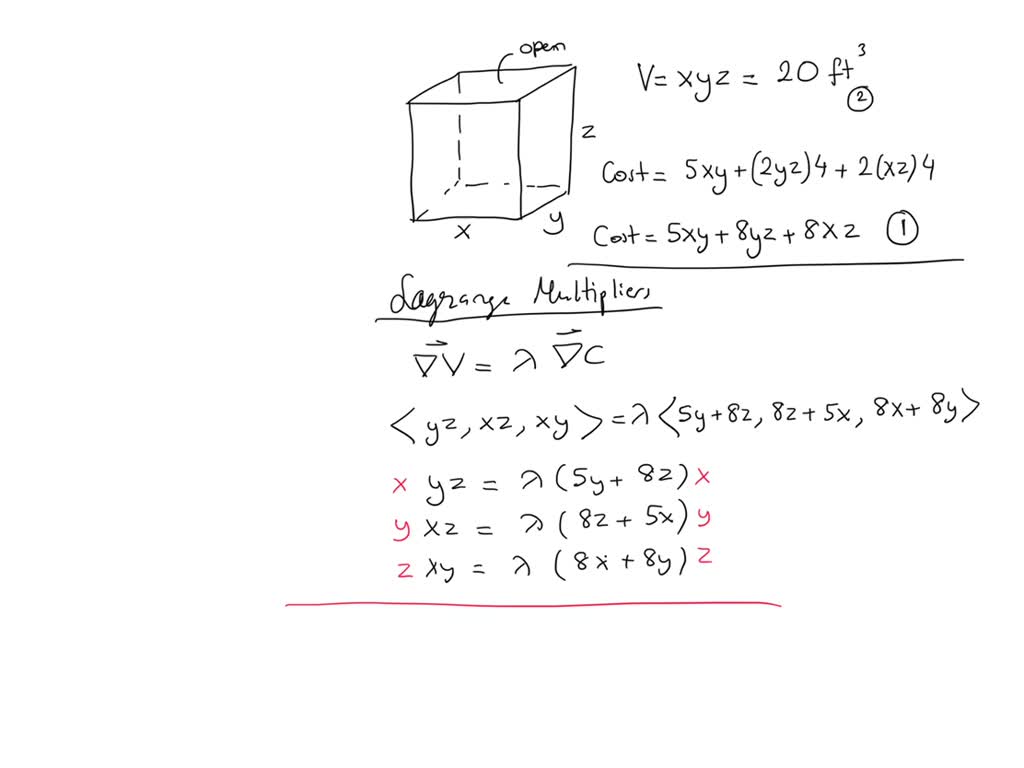 open
V = xyz = 20 ft³
②
z
Cost = 5xy + (2yz)4 + 2(xz)4
x
y
Cost = 5xy + 8yz + 8xz ①
Lagrange Multipliers
∇V = λ ∇C
<yz, xz, xy> = λ<5y+8z, 8z+5x, 8x+8y>
x yz = λ (5y + 8z) x
y xz = λ (8z + 5x) y
z xy = λ (8x + 8y) z